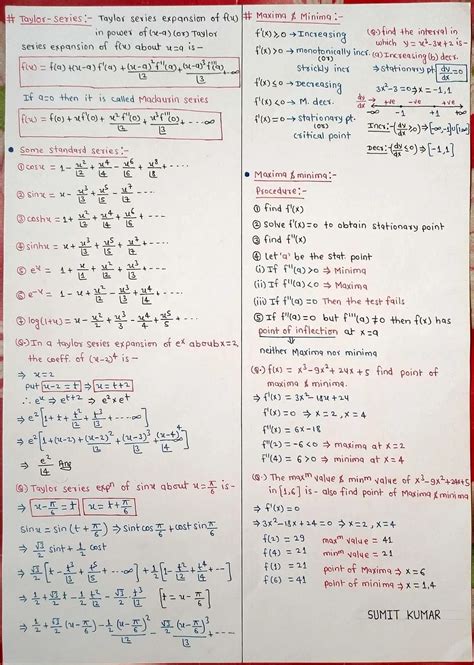 # Taylor-Series:- Taylor series expansion of f(x)
in power of (x-a) (or) Taylor
series expansion of f(x) about x=a is -
f(x) = f(a)+(x-a)f'(a)+(x-a)²f''(a)/⌊2+(x-a)³f'''(a)/⌊3+----∞
If a=0 then it is called Maclaurin series
f(x) = f(0)+xf'(0)+x²f''(0)/⌊2+x³f'''(0)/⌊3+----∞
• Some standard series:-
① cosx = 1-x²/⌊2+x⁴/⌊4-x⁶/⌊6+x⁸/⌊8+----
② sinx = x-x³/⌊3+x⁵/⌊5-x⁷/⌊7+----
③ coshx = 1+x²/⌊2+x⁴/⌊4+x⁶/⌊6+----
④ sinhx = x+x³/⌊3+x⁵/⌊5+x⁷/⌊7+----
⑤ eˣ = 1+x/⌊1+x²/⌊2+x³/⌊3+----
⑥ e⁻ˣ = 1-x+x²/⌊2-x³/⌊3+x⁴/⌊4+----
⑦ log(1+x) = x-x²/2+x³/3-x⁴/4+x⁵/5----
(Q.) In a taylor series expansion of eˣ about x=2,
the coeff. of (x-2)⁴ is -
⇒ x=2
put x-2=t ⇒ x=t+2
∴ eˣ ⇒ eᵗ⁺² ⇒ e²×eᵗ
⇒ e²[1+t+t²/⌊2+t³/⌊3----]
⇒ e²[1+(x-2)+(x-2)²/⌊2+(x-2)³/⌊3+(x-2)⁴/⌊4]
⇒ e²/⌊4 Ans
(Q) Taylor series expⁿ of sinx about x=π/6 is-
⇒ x-π/6=t ⇒ x=t+π/6
sinx = sin(t+π/6) ⇒ sint cosπ/6+cost sinπ/6
⇒ √3/2 sint+1/2 cost
⇒ √3/2[t-t³/⌊3+t⁵/⌊5+---∞]+1/2[1-t²/⌊2+t⁴/⌊4----]
⇒ 1/2+√3/2t-1/2·t²/⌊2-√3/2·t³/⌊3 [t=x-π/6]
⇒ 1/2+√3/2(x-π/6)-1/2(x-π/6)²/⌊2-√3/2(x-π/6)³/⌊3----
# Maxima & Minima:-
f'(x)≥0 → Increasing
f'(x)>0 → monotonically incr.
(or)
strictly incr
f'(x)≤0 → Decreasing
f'(x)<0 → M. decr.
f'(x)=0 → stationary pt.
(or)
critical point
(Q) find the interval in
which y=x³-3x+2 is-
(a) Increasing (b) decr.
⇒ stationary pt dy/dx=0
3x²-3=0 ⇒ x=-1,1
+ve -ve +ve
-∞ -1 +1 +∞
Incr:-(dy/dx≥0) ⇒ [-∞,-1]∪[1,∞]
Decr:-(dy/dx≤0) ⇒ [-1,1]
• Maxima & minima:-
Procedure:-
① find f'(x)
② Solve f'(x)=0 to obtain stationary point
③ find f''(x)
④ Let 'a' be the stat. point
(i) If f''(a)>0 ⇒ Minima
(ii) If f''(a)<0 ⇒ Maxima
(iii) If f''(a)=0 Then the test fails
⑤ If f''(a)=0 but f'''(a)≠0 then f(x) has
point of inflection at x=a
↓
neither Maxima nor minima
(Q.) f(x)=x³-9x²+24x+5 find point of
maxima & minima.
⇒ f'(x)=3x²-18x+24
f'(x)=0 ⇒ x=2, x=4
f''(x)=6x-18
f''(2)=-6<0 ⇒ maxima at x=2
f''(4)=6>0 ⇒ minima at x=4
(Q.) The maxᵐ value & minᵐ value of x³-9x²+24x+5
in [1,6] is - also find point of Maxima & minima
⇒ f'(x)=0
⇒ 3x²-18x+24=0 ⇒ x=2, x=4
f(2)=29 maxᵐ value=41
f(4)=21 minᵐ value=21
f(1)=21 point of Maxima ⇒ x=6
f(6)=41 point of minima ⇒ x=1,4
SUMIT KUMAR